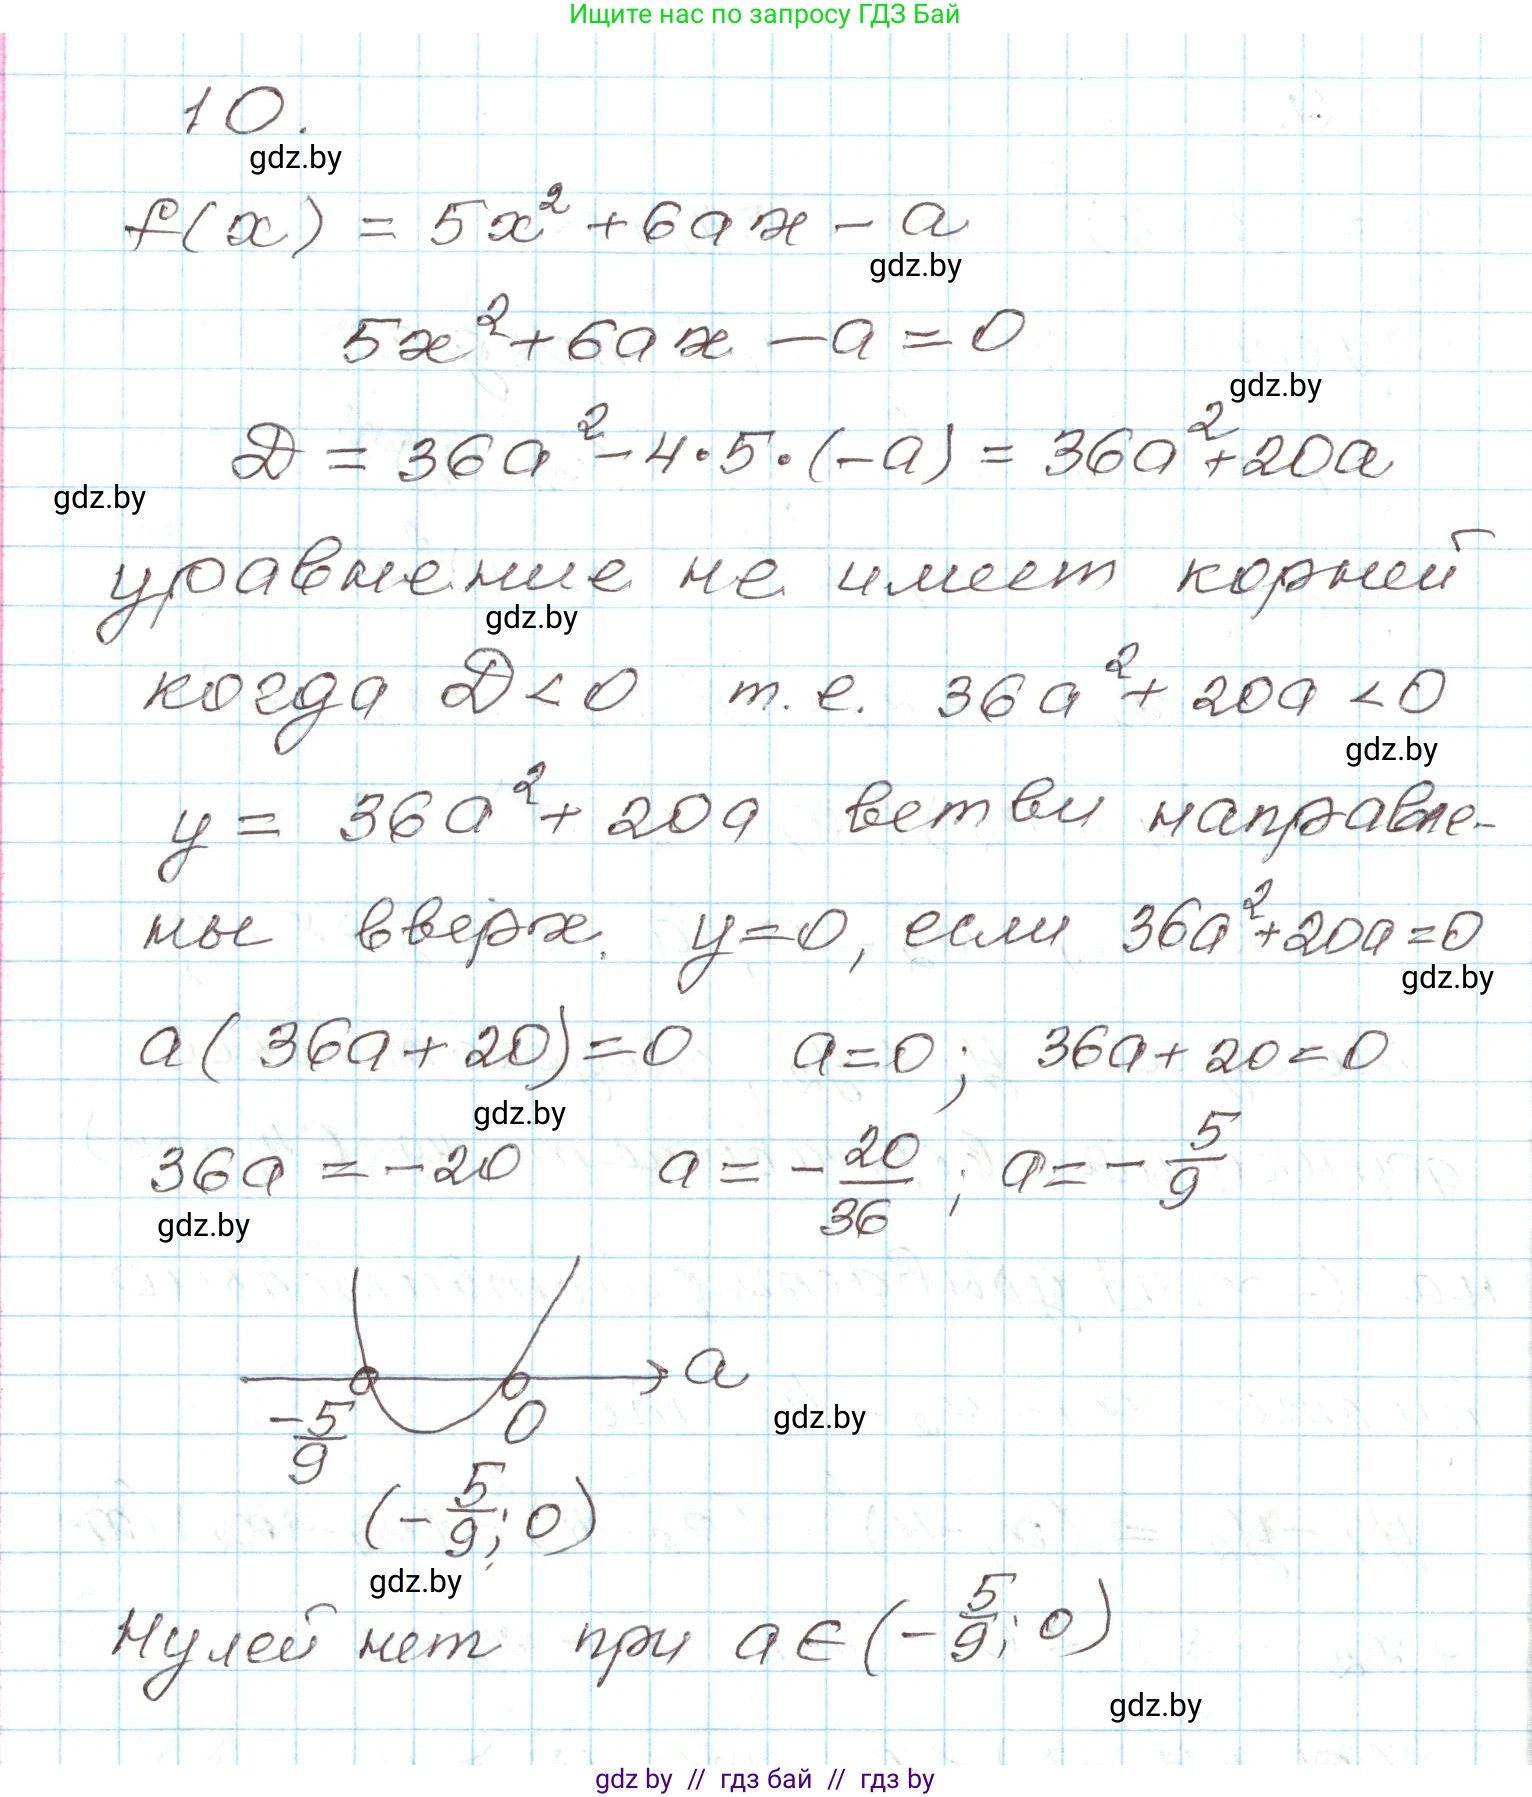 Ищите нас по запросу ГДЗ Бай
10.
gdz.by
f(x) = 5x² + 6ax - a
gdz.by
5x² + 6ax - a = 0
gdz.by
D = 36a² - 4·5·(-a) = 36a² + 20a
gdz.by
уравнение не имеет корней
gdz.by
когда D < 0 т.е. 36a² + 20a < 0
gdz.by
y = 36a² + 20a ветви направле-
ны вверх. y=0, если 36a²+20a=0
gdz.by
a(36a+20)=0 a=0; 36a+20=0
gdz.by
36a = -20 a = -20/36; a = -5/9
gdz.by
a
-5/9 0
gdz.by
(-5/9; 0)
gdz.by
Нулей нет при a ∈ (-5/9; 0)
gdz.by
gdz by // гдз бай // гдз by